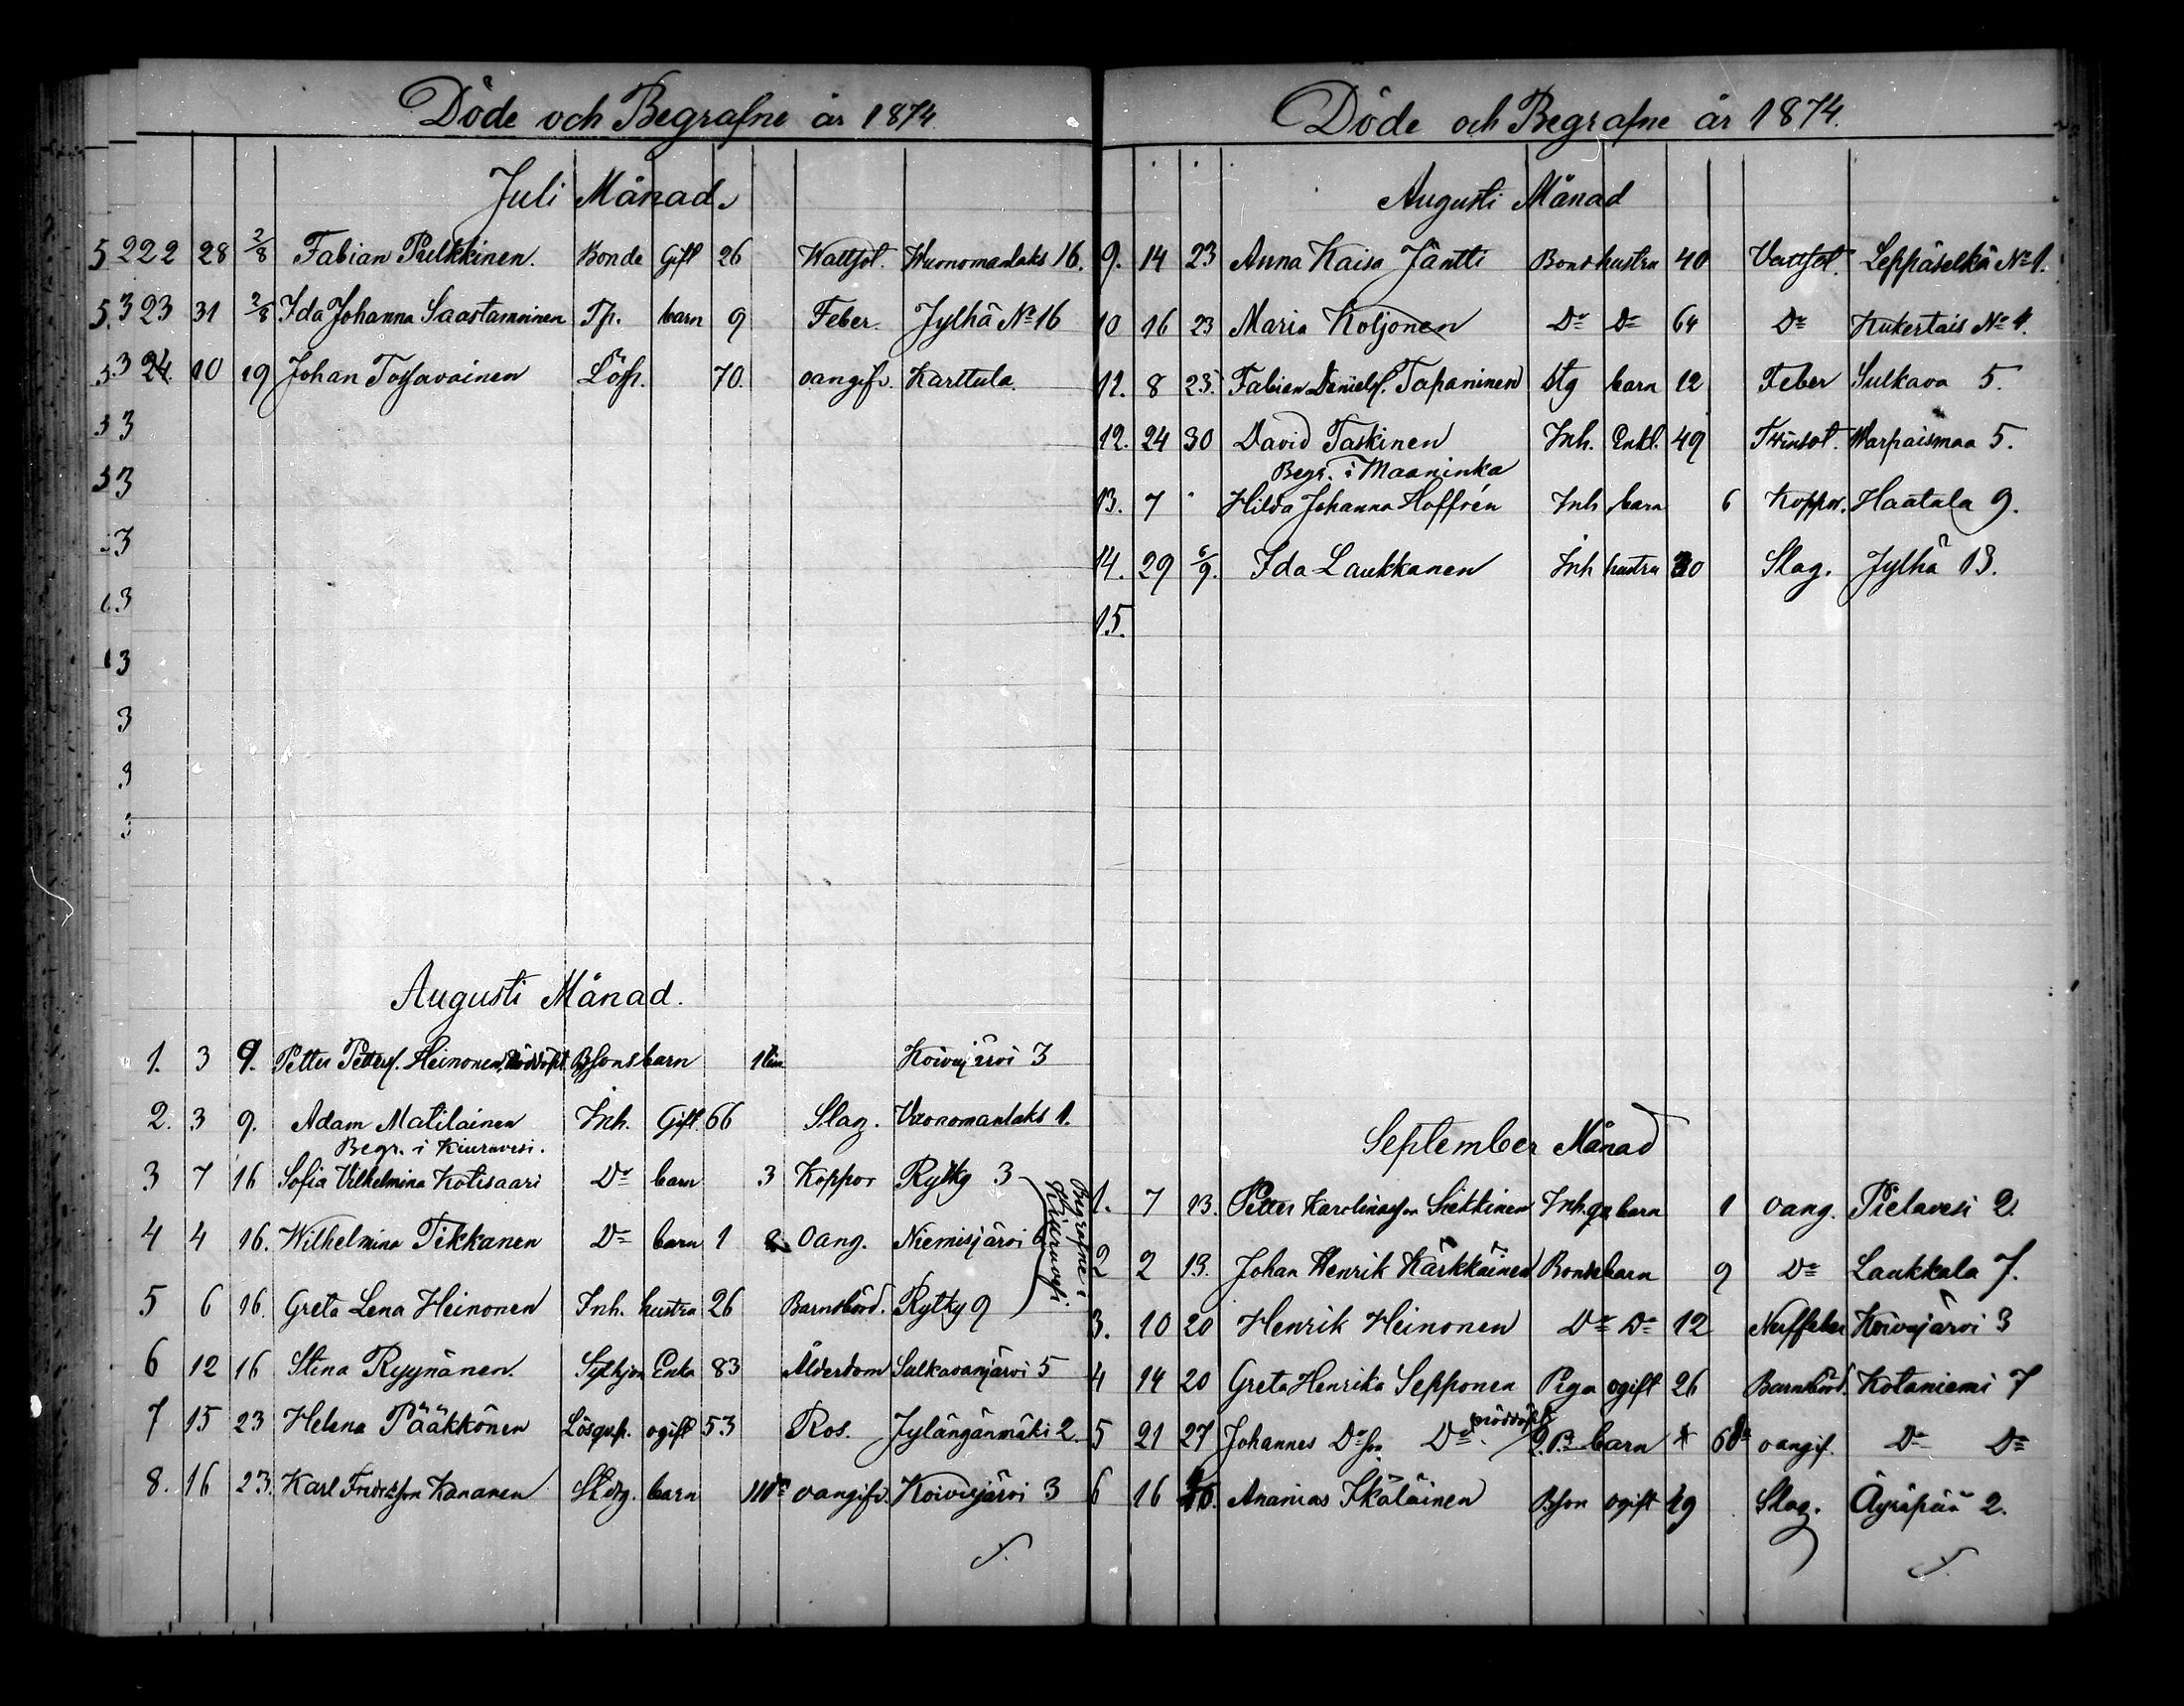 Döde och Begrafne år 1874.
Juli Månad.
22 28 2/8 Fabian Pulkkinen. Bonde Gift 26 Wattsot. Wuonomanlaks 16.
23 31 2/8 Ida Johanna Saastamoinen Tp. barn 9 Feber. Jylhä No 16
24. 10 19 Johan Tossavainen 70. oangifv. Karttula.
Augusti Månad.
1. 3 9. Petter Petterss. Heinonen, nöddöpt Bsons barn 1 tim Koivujärvi 3
2. 3 9. Adam Matilainen Inh. Gift 66 Slag. Vuonomanlaks 1.
Begr. i Kiuruvesi.
3 7 16 Sofia Vilhelmina Kotisaari Do barn 3 Koppor Rytky 3
4 4 16. Wilhelmina Tikkanen Do barn 1 Oang. Niemisjärvi 6
5 6 16. Greta Lena Heinonen Inh. hustru 26 Barnsbörd. Rytky 9
Begrafne i Kiuruvesi.
6 12 16 Stina Ryynänen. Enka 83 Ålderdom Sulkavanjärvi 5
7 15 23 Helena Pääkkönen Lösqvp. ogift 53 Ros. Jylängänmäki 2.
8. 16 23. Karl Fredrikson Kananen barn oangifv. Koivujärvi 3
Döde och Begrafne år 1874.
Augusti Månad
9. 14 23 Anna Kaisa Jäntti Bond hustru 40 Vattsot. Leppäselkä No 1.
10 16 23 Maria Koljonen Do Do 64 Do
11. 8 23. Fabian Daniels. Tapaninen Stg barn 12 Feber Sulkava 5.
12. 24 30 David Taskinen Inh. Enkl. 49 Tvinsot. Warpaismaa 5.
Begr. i Maaninka
13. 7 " Hilda Johanna Hoffrén Inh barn 6 Koppor. Haatala 9.
14. 29 6/9. Ida Laukkanen Inh hustru 30 Slag. Jylhä 13.
15.
September Månad
1. 7 13. Petter Karolinason Inh.qv barn 1 oang. Pielavesi 2.
2 2 13. Johan Henrik Kärkkäinen Bonde barn 9 Do Laukkala 7.
3. 10 20 Henrik Heinonen Do Do 12 Nerffeber Koivujärvi 3
4 14 20 Greta Henrika Sepponen Piga ogift 26 Barnsbörd. Kotaniemi 7
5 21 27 Johannes Do son Do nöddöpt barn 6 da oangif. Do Do
6 16 Ananias Ikäläinen Bson ogift 19 Slag. Äyräpää 2.